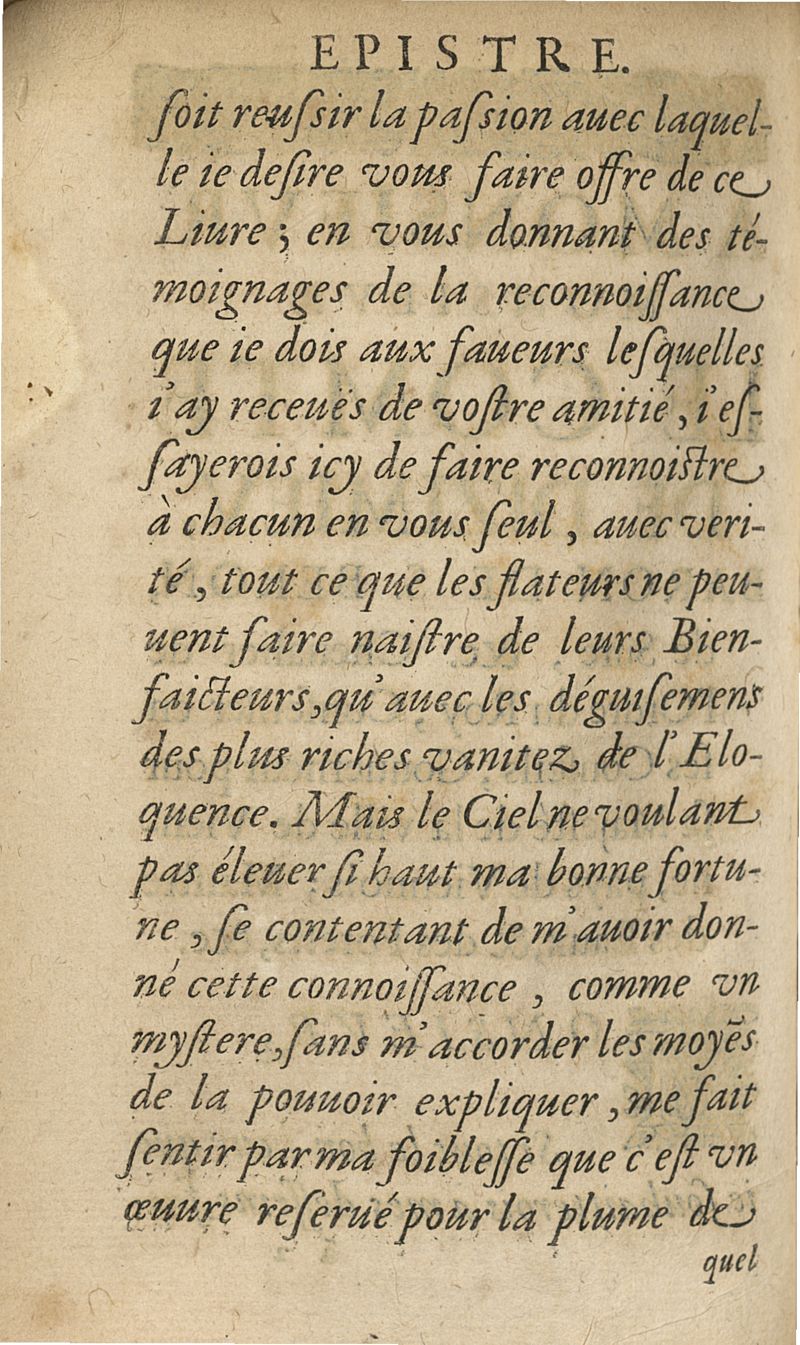 EPISTRE.
ſoit reuſsir la paſsion auec laquel-
le ie deſire vous faire offre de ce
Liure ; en vous donnant des té-
moignages de la reconnoiſſance
que ie dois aux faueurs leſquelles
i'ay receuës de voſtre amitié, i'eſ-
ſayerois icy de faire reconnoistre
à chacun en vous ſeul, auec veri-
té, tout ce que les flateurs ne peu-
uent faire naiſtre de leurs Bien-
faicteurs, qu'auec les déguiſemens
des plus riches vanitez de l'Elo-
quence. Mais le Ciel ne voulant
pas éleuer ſi haut ma bonne fortu-
ne, ſe contentant de m'auoir don-
né cette connoiſſance, comme vn
myſtere, ſans m'accorder les moyẽs
de la pouuoir expliquer, me fait
ſentir par ma foibleſſe que c'eſt vn
œuure reſerué pour la plume de
quel